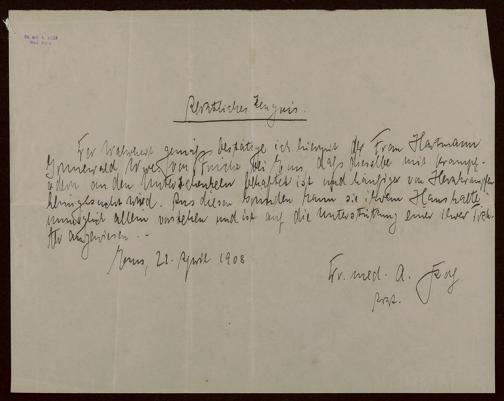 Aerztliches Zeugnis.
Der Wahrheit gemäss bestätige ich hiermit der Frau Hartmann
Grunewald, Wwe, von bei Jens, dass dieselbe mit Krampf-
adern an den Unterschenkeln behaftet ist und häufiger von Herzkrämpfen
heimgesucht wird. Aus diesen Gründen kann sie ihrem Haushalte
unmöglich allein vorstehen und ist auf die Unterstützung einer ihrer Töch-
ter angewiesen. -
21. April 1908
Dr. med. A.
Arzt.